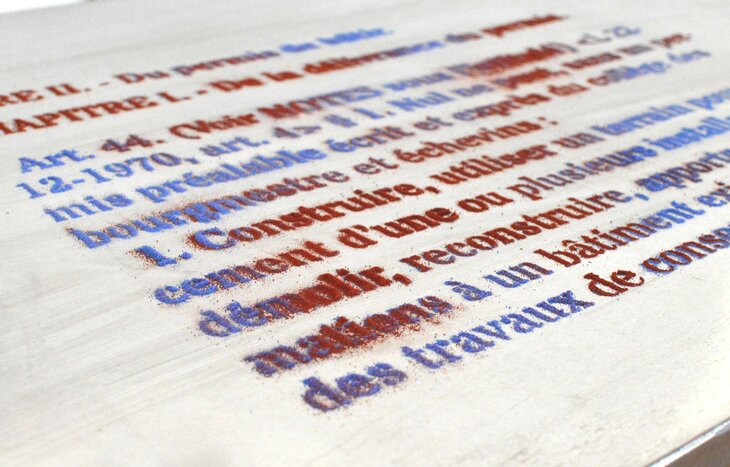 RE II. - Du permis de bâtir.
HAPITRE I. - De la délivrance du permis.
Art. 44. (Voir NOTES sous
12-1970, art. 4> § 1. Nul ne peut, sans un per-
mis préalable écrit et exprès du collège des
bourgmestre et échevins :
1. Construire, utiliser un terrain pou
cement d'une ou plusieurs installe
démolir, reconstruire, apporte
mations à un bâtiment exi
des travaux de conse